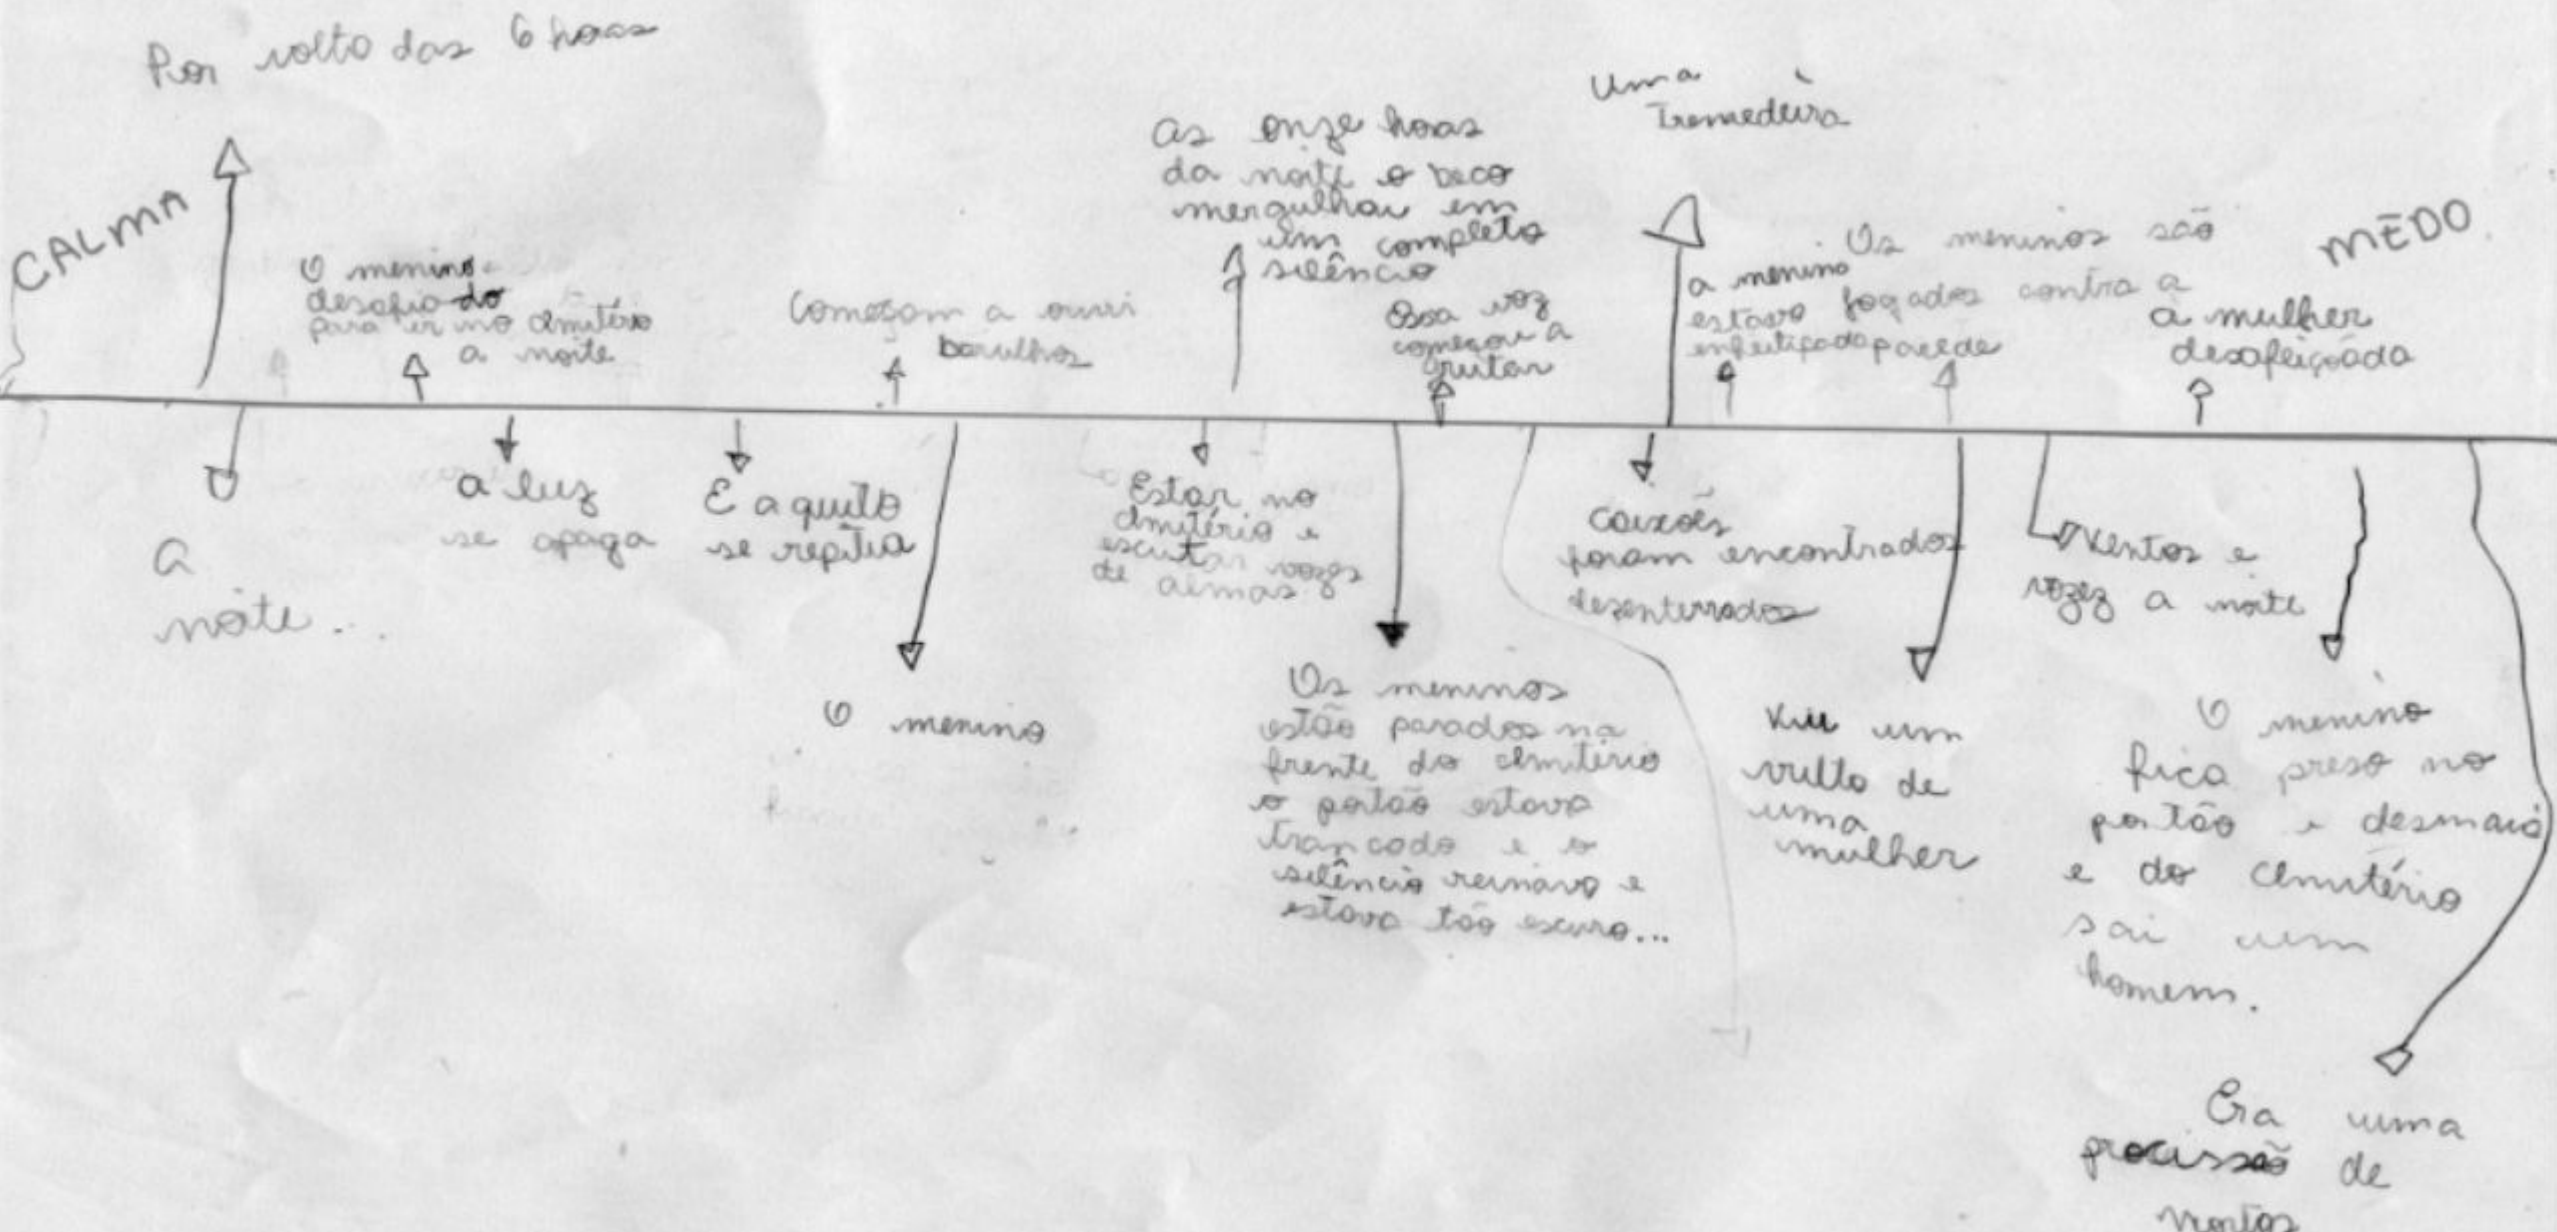 Por volto das 6 horas
CALMA
O menino
desafiado
para ir no cmitério
a noite
Começam a ouvi
barulhos
as onze horas
da noite o beco
mergulhou em
um completo
silêncio
Essa voz
começou a
gritar
uma
Tremedeira
a menina
estava
enfeitiçada
Os meninos são
jogados contra a
parede
MÊDO
a mulher
desafeiçoada
a
noite...
a luz
se apaga
E aquilo
se repitia
O menino
Estar no
cmitério e
escutar vozes
de almas
Os meninos
estão parados na
frente do cmitério
o portão estava
trancado e o
silêncio reinava e
estava tão escuro...
caixões
foram encontrados
desenterrados
viu um
vulto de
uma
mulher
Ventos e
vozez a noite
O menino
fica preso no
portão e desmaia
e do cmitério
sai um
homem.
Era uma
procissão de
mortos